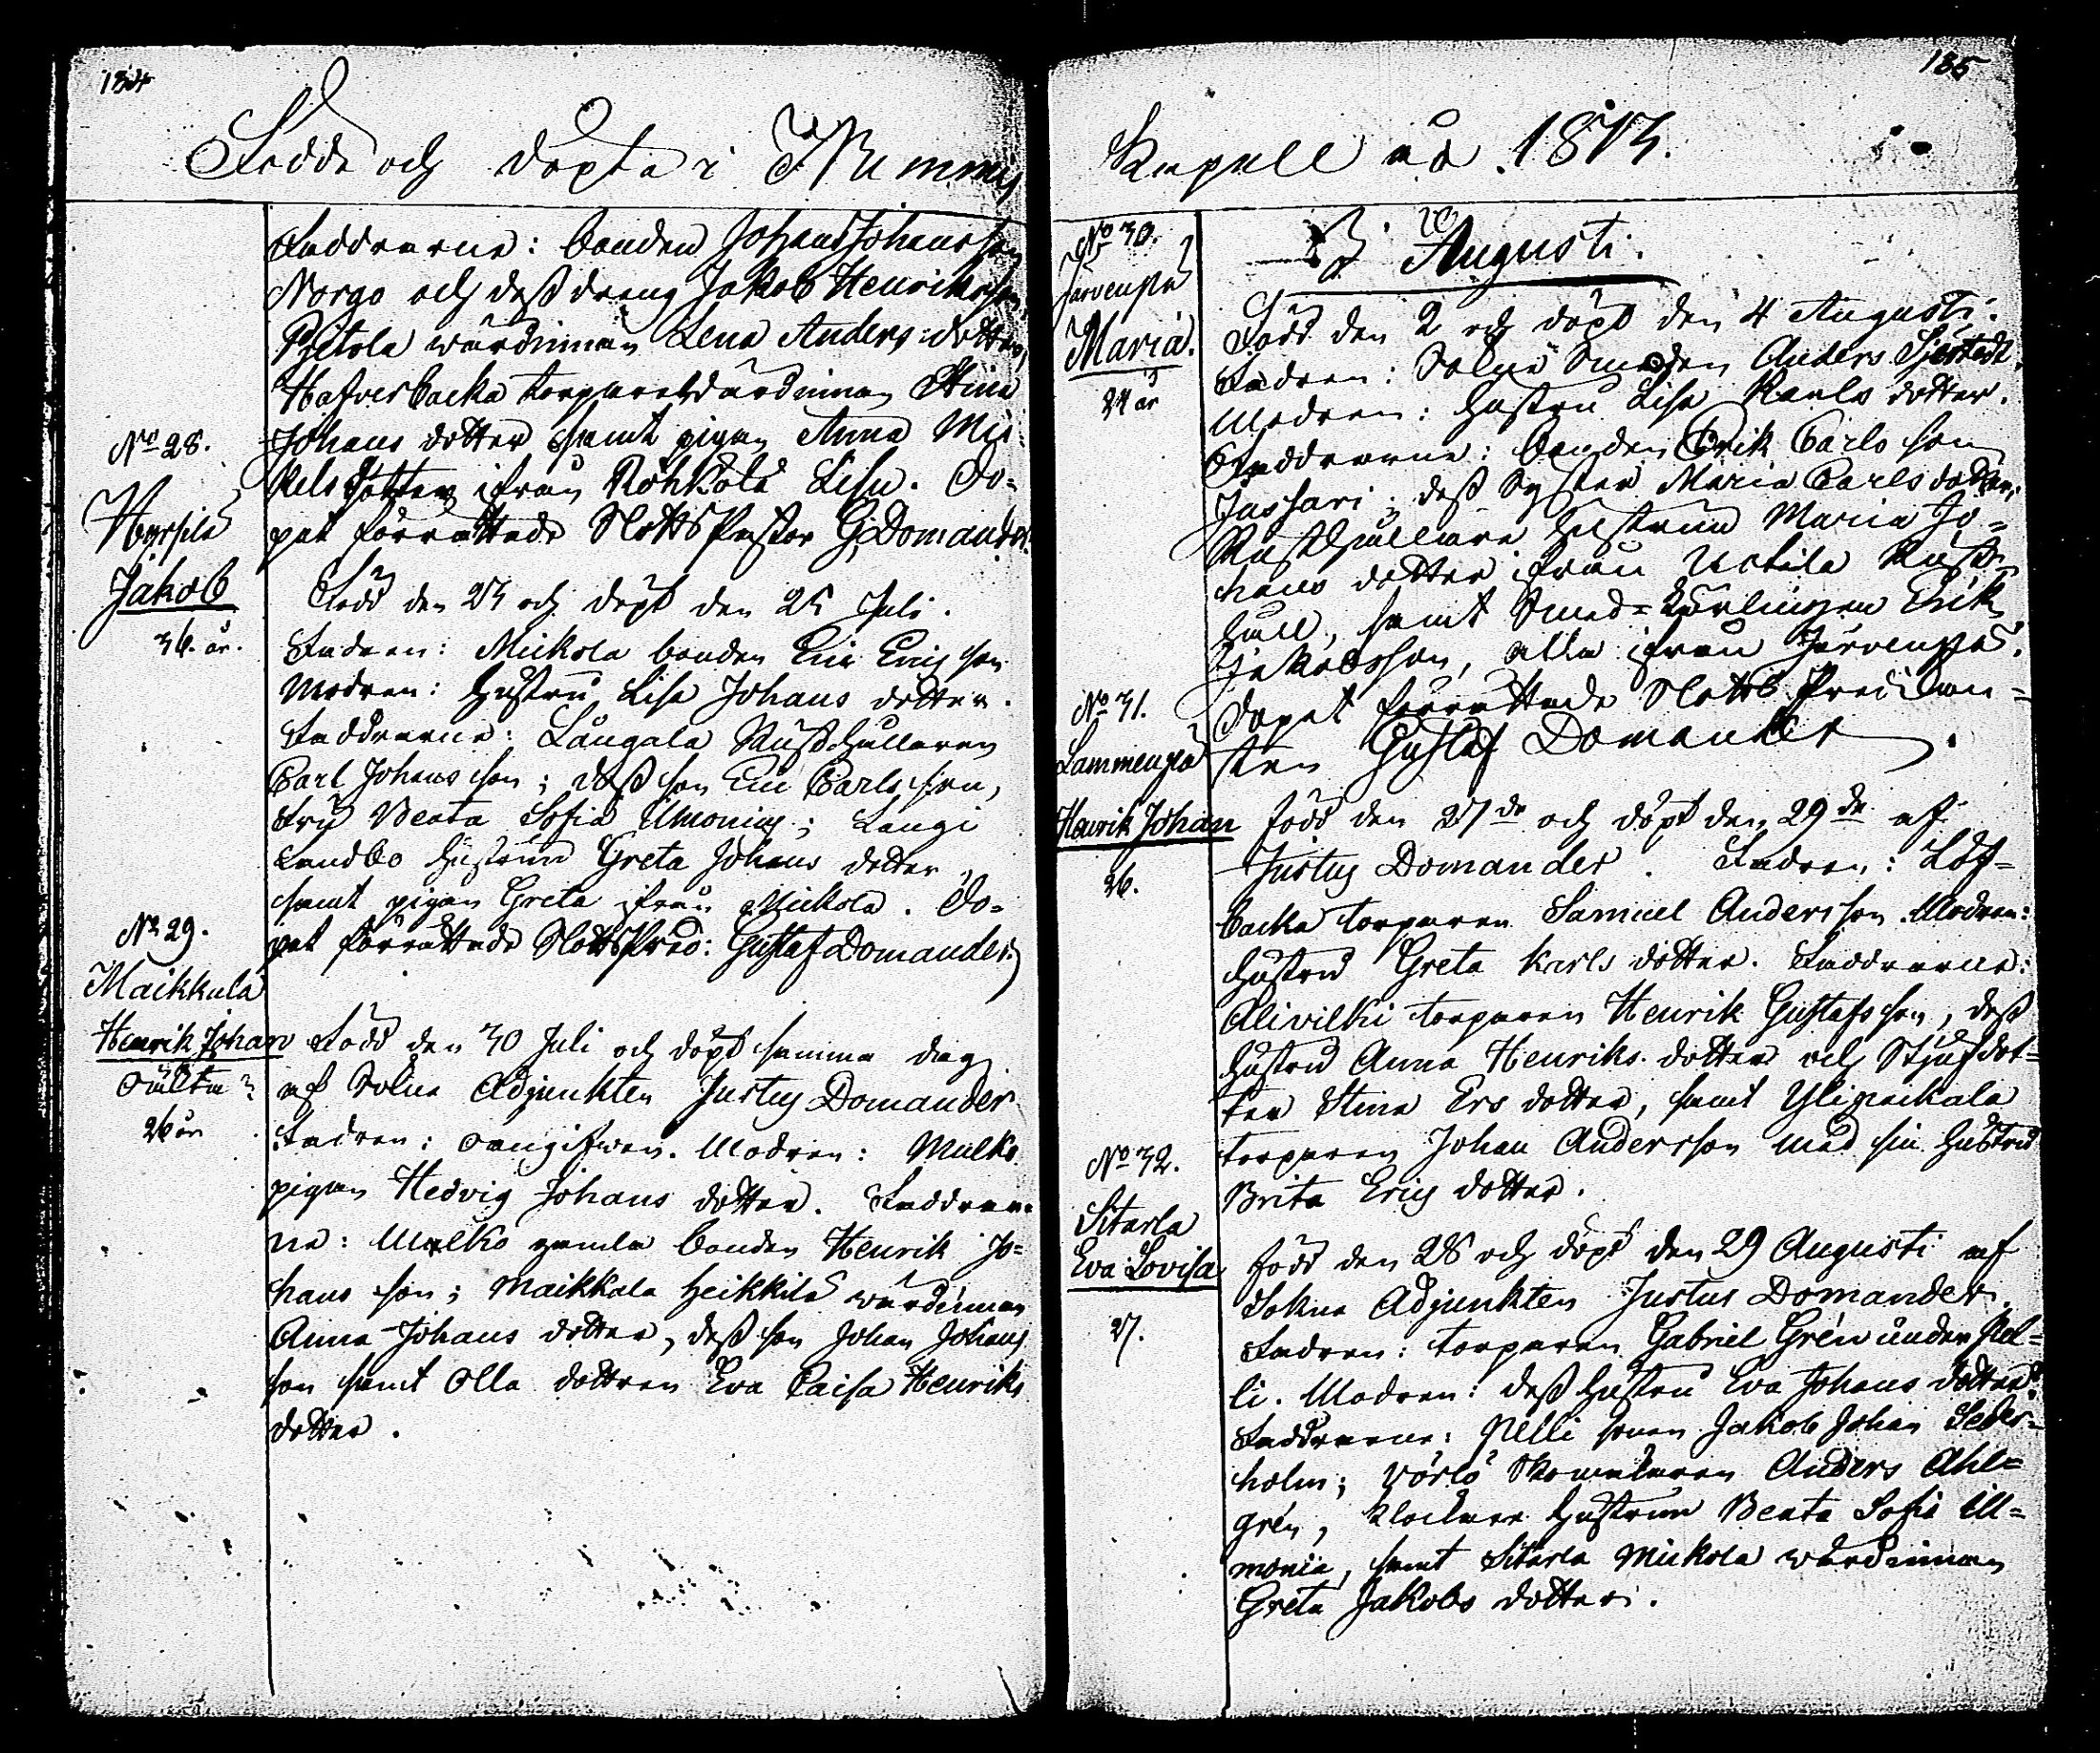 184
Födde och döpte i Nummis
Faddrarne: bonden Johan Johansson
Norgo och dess dräng Jakob Henriksson,
Pjetola wärdinnan Lena Anders dotter,
Hafverbacka torparevärdinnan Stina
No 28.
Johans dotter samt pigan Anna Mi-
kels dotter ifrån Röhkölä Lisu. Do-
Hyrsilä
pet förrättade Slotts Pastor G. Domander.
Jakob
Född den 23 och döpt den 25 Juli.
36. år.
Fadren: Mickola bonden Eric Ericsson
Modren: hustru Lisa Johans dotter.
Faddrarne: Långala Rusthållaren
Carl Johans son; dess son Eric Carls son,
Fru Beata Sofia Ulmonius; Langi
Landbo hustrun Greta Johans dotter,
samt pigan Greta ifrån Mickola. Do-
No 29.
pet förrättade Slotts Pred: Gustaf Domander.
Maikkala
Henrik Johan
Född den 30 Juli och döpt samma dag
oäkta
af Sokne Adjunkten Justus Domander
26 år
Fadren: oangifven. Modren: Mulko
pigan Hedvig Johans dotter. Faddrar-
ne: Mulko gamla bonden Henrik Jo-
hans son; Maikkala Heikkilä wärdinnan
Anna Johans dotter, dess son Johan Johans
son samt Olla dottren Eva Caisa Henriks
dotter.
185
Kapell år 1813.
No 30.
Augusti.
Järvenpä
Maria.
24 år
Född den 2 och döpt den 4 Augusti.
Fadren: Sokne Smeden Anders Sjöstedt.
Modren: hustru Lisa Karls dotter.
Faddrarne: bonden Erik Carls son
Jussari; dess Syster Maria Carls dotter;
Rusthållare hustrun Maria Jo-
hans dotter ifrån Uotila Rust-
håll, samt Smed-Lärlingen Erik
Jakobsson, alla ifrån Järvenpä.
No 31.
Dopet förrättade Slotts Predikan-
Lammenpä
ten Gustaf Domander.
Henrik Johan
född den 27de och döpt den 29de af
36.
Justus Domander. Fadren: Löf-
backa torparen Samuel Andersson. Modren:
hustru Greta Karls dotter. Faddrarne:
Alivilki torparen Henrik Gustafs son, dess
hustru Anna Henriks dotter och Stjufdot-
ter Stina Ers dotter, samt Ylipaikala
No 32.
torparen Johan Andersson med sin hustru
Brita Erics dotter.
Sitarla
Eva Lovisa
född den 28 och döpt den 29 Augusti af
Sokne Adjunkten Justus Domander.
27.
Fadren: torparen Gabriel Grén under Pel-
li. Modren: dess hustru Eva Johans dotter.
Faddrarne: Pelli sonen Jakob Johan Seder-
holm; Vörlö Skomakaren Anders Ahl-
grén, klockare hustrun Beata Sofia Ul-
monia, samt Sitarla Mickola wärdinnan
Greta Jakobs dotter.